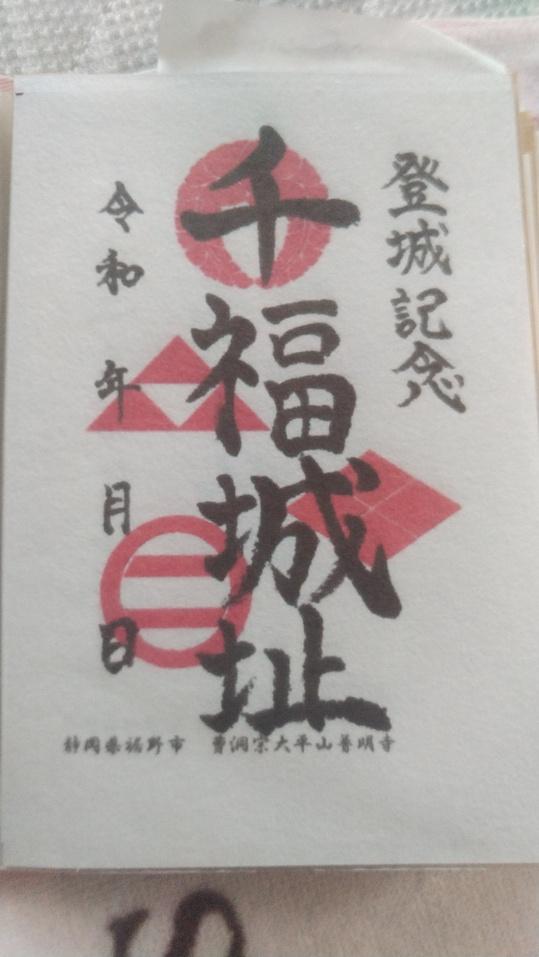 登城記念
千福城址
令和 年 月 日
静岡県裾野市 曹洞宗大平山普明寺